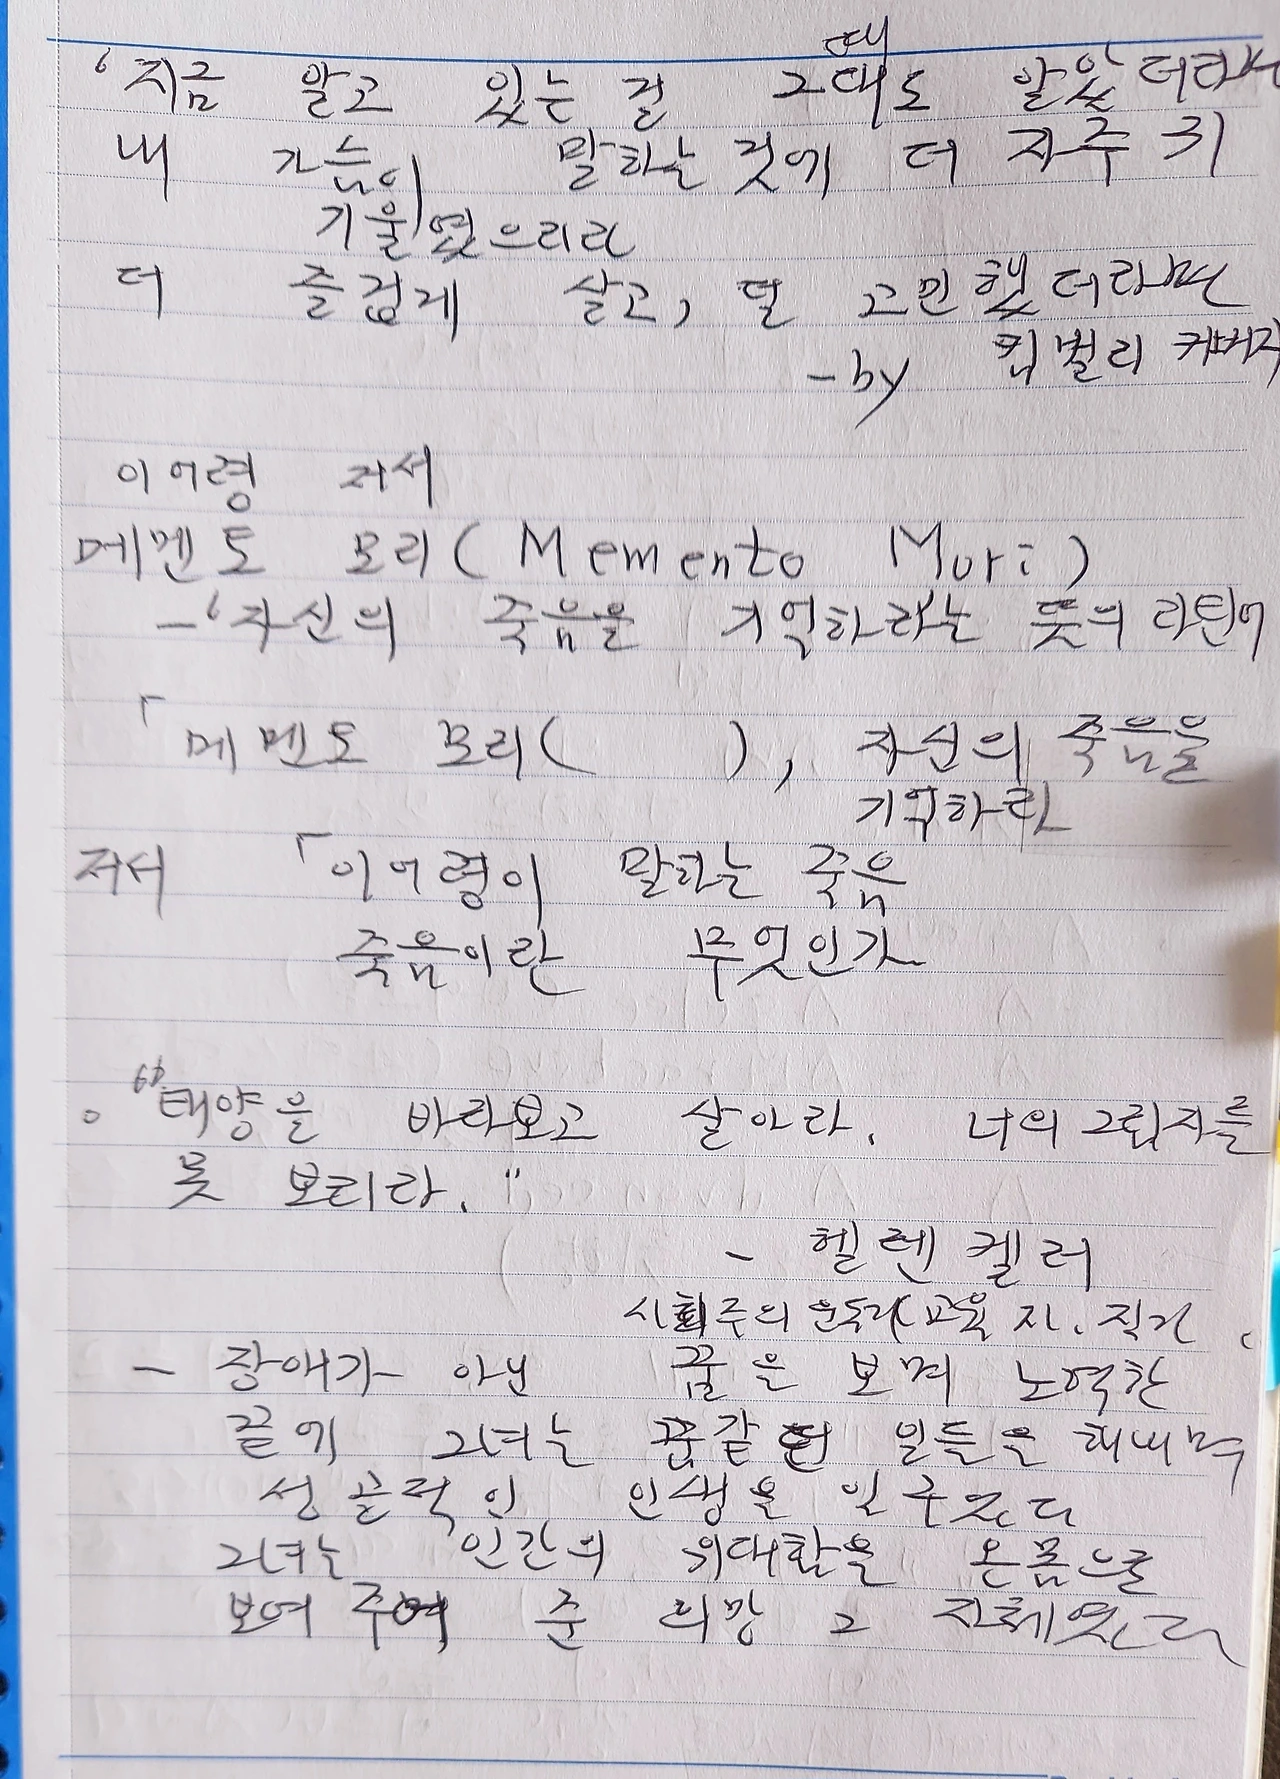 때
'지금 알고 있는 걸 그대도 알았더라면
내 가슴이 말하는 것에 더 자주 귀
기울였으리라
더 즐겁게 살고, 덜 고민했더라면
-by 킴벌리 커버저
이어령 저서
메멘토 모리(Memento Mori)
-'자신의 죽음을 기억하라는 뜻의 라틴어
「메멘토 모리( ), 자신의 죽음을
기억하라
저서 「이어령이 말하는 죽음
죽음이란 무엇인가
。"태양을 바라보고 살아라. 너의 그림자를
못 보리라."
- 헬렌 켈러
사회주의 운동가(교육자. 작가
- 장애가 아닌 꿈을 보며 노력한
끝에 그녀는 꿈같던 일들을 해내며
성공적인 인생을 일구었다
그녀는 '인간의 위대함을 온몸으로
보여 주며 준 희망 그 자체였다